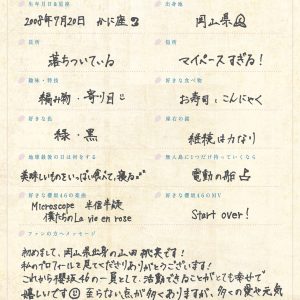 生年月日&星座 出身地
2008年7月20日 かに座 岡山県
長所 短所
落ちついている マイペースすぎる！
趣味・特技 好きな食べ物
編み物・寄り目 お寿司・こんにゃく
好きな色 座右の銘
緑・黒 継続は力なり
地球最後の日は何をする 無人島に1つだけ持っていくなら
美味しいものをいっぱい食べて、寝る 電動の船
好きな櫻坂46の楽曲 好きな櫻坂46のMV
Microscope 半信半疑
僕たちのLa vie en rose Start over!
ファンの方へメッセージ
初めまして、岡山県出身の山田桃実です！
私のプロフィールを見てくださりありがとうございます！
これから櫻坂46の一員として、活動できることがとても幸せで
嬉しいです 至らない点が多くありますが、多くの愛や元気